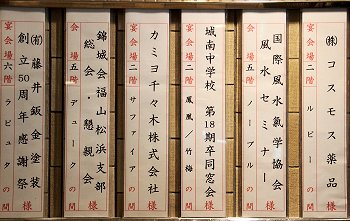 ㈱コスモス薬品 様
宴会場一階 ルビーの間
国際風水氣学協会 様
風水セミナー
会場五階 ノーブルの間
城南中学校 第18期卒同窓会 様
宴会場二階 鳳凰/竹梅の間
カミヨ千々木株式会社 様
宴会場二階 サファイアの間
錦城会福山松浜支部 様
総会・懇親会
会場五階 デュークの間
㈲藤井鈑金塗装 様
創立50周年感謝祭
宴会場六階 ラピュタの間